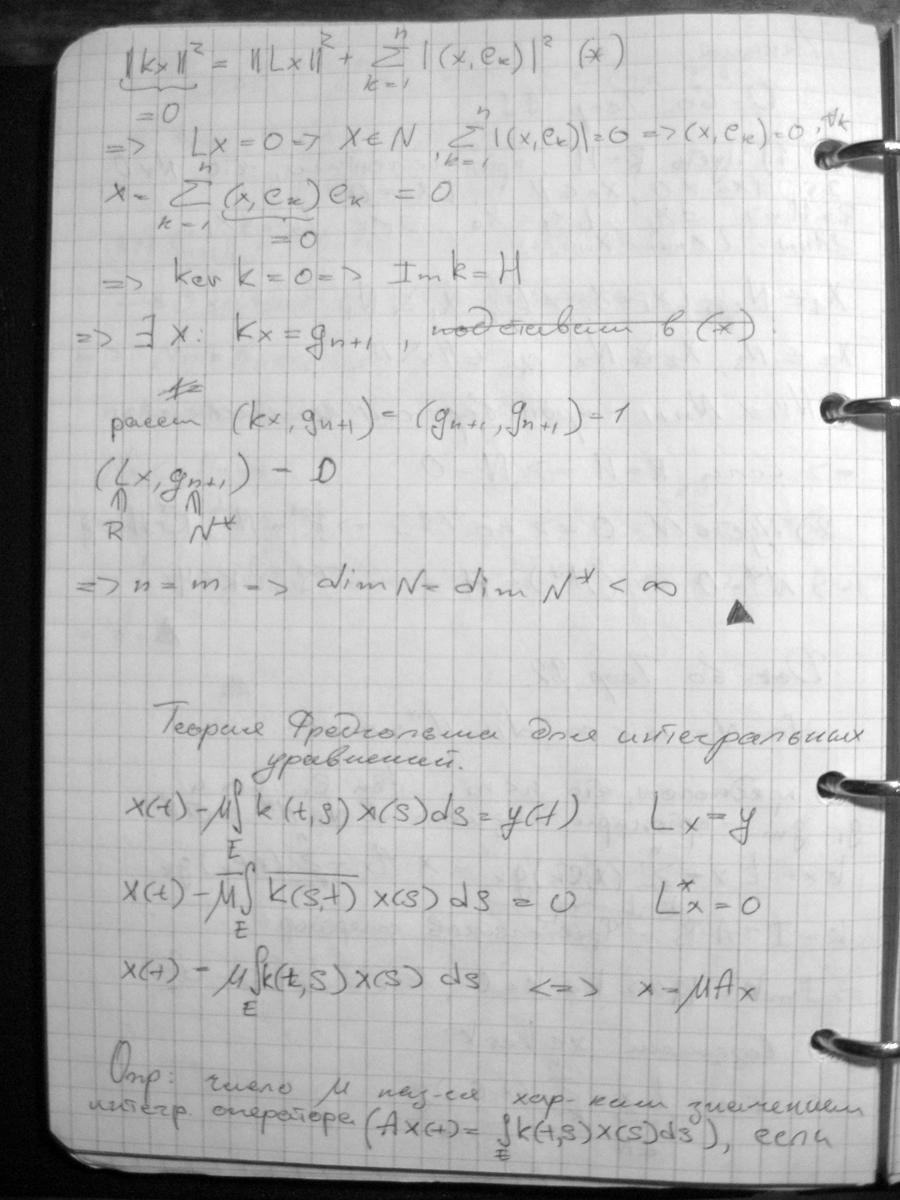 ||kx||² = ||Lx||² + Σ_{k=1}^{n} |(x, e_k)|² (*)
= 0
=> Lx = 0 => x ∈ N, Σ_{k=1}^{n} |(x, e_k)| = 0 => (x, e_k) = 0, ∀k
x = Σ_{k=1}^{n} (x, e_k) e_k = 0
= 0
=> ker k = 0 => Im k = H
=> ∃ x: kx = g_{n+1}, подставим в (*).
рассм (kx, g_{n+1}) = (g_{n+1}, g_{n+1}) = 1
(Lx, g_{n+1}) = 0
R N*
=> n = m => dim N = dim N* < ∞
▲
Теория Фредгольма для интегральных
уравнений.
x(t) - μ∫_E k(t,s) x(s) ds = y(t) Lx = y
x(t) - μ̅∫_E \overline{k(s,t)} x(s) ds = 0 L*x = 0
x(t) - μ∫_E k(t,s) x(s) ds <=> x - μAx
Опр: число μ наз-ся хар-ким значением
интегр. оператора (Ax(t) = ∫_E k(t,s)x(s)ds), если